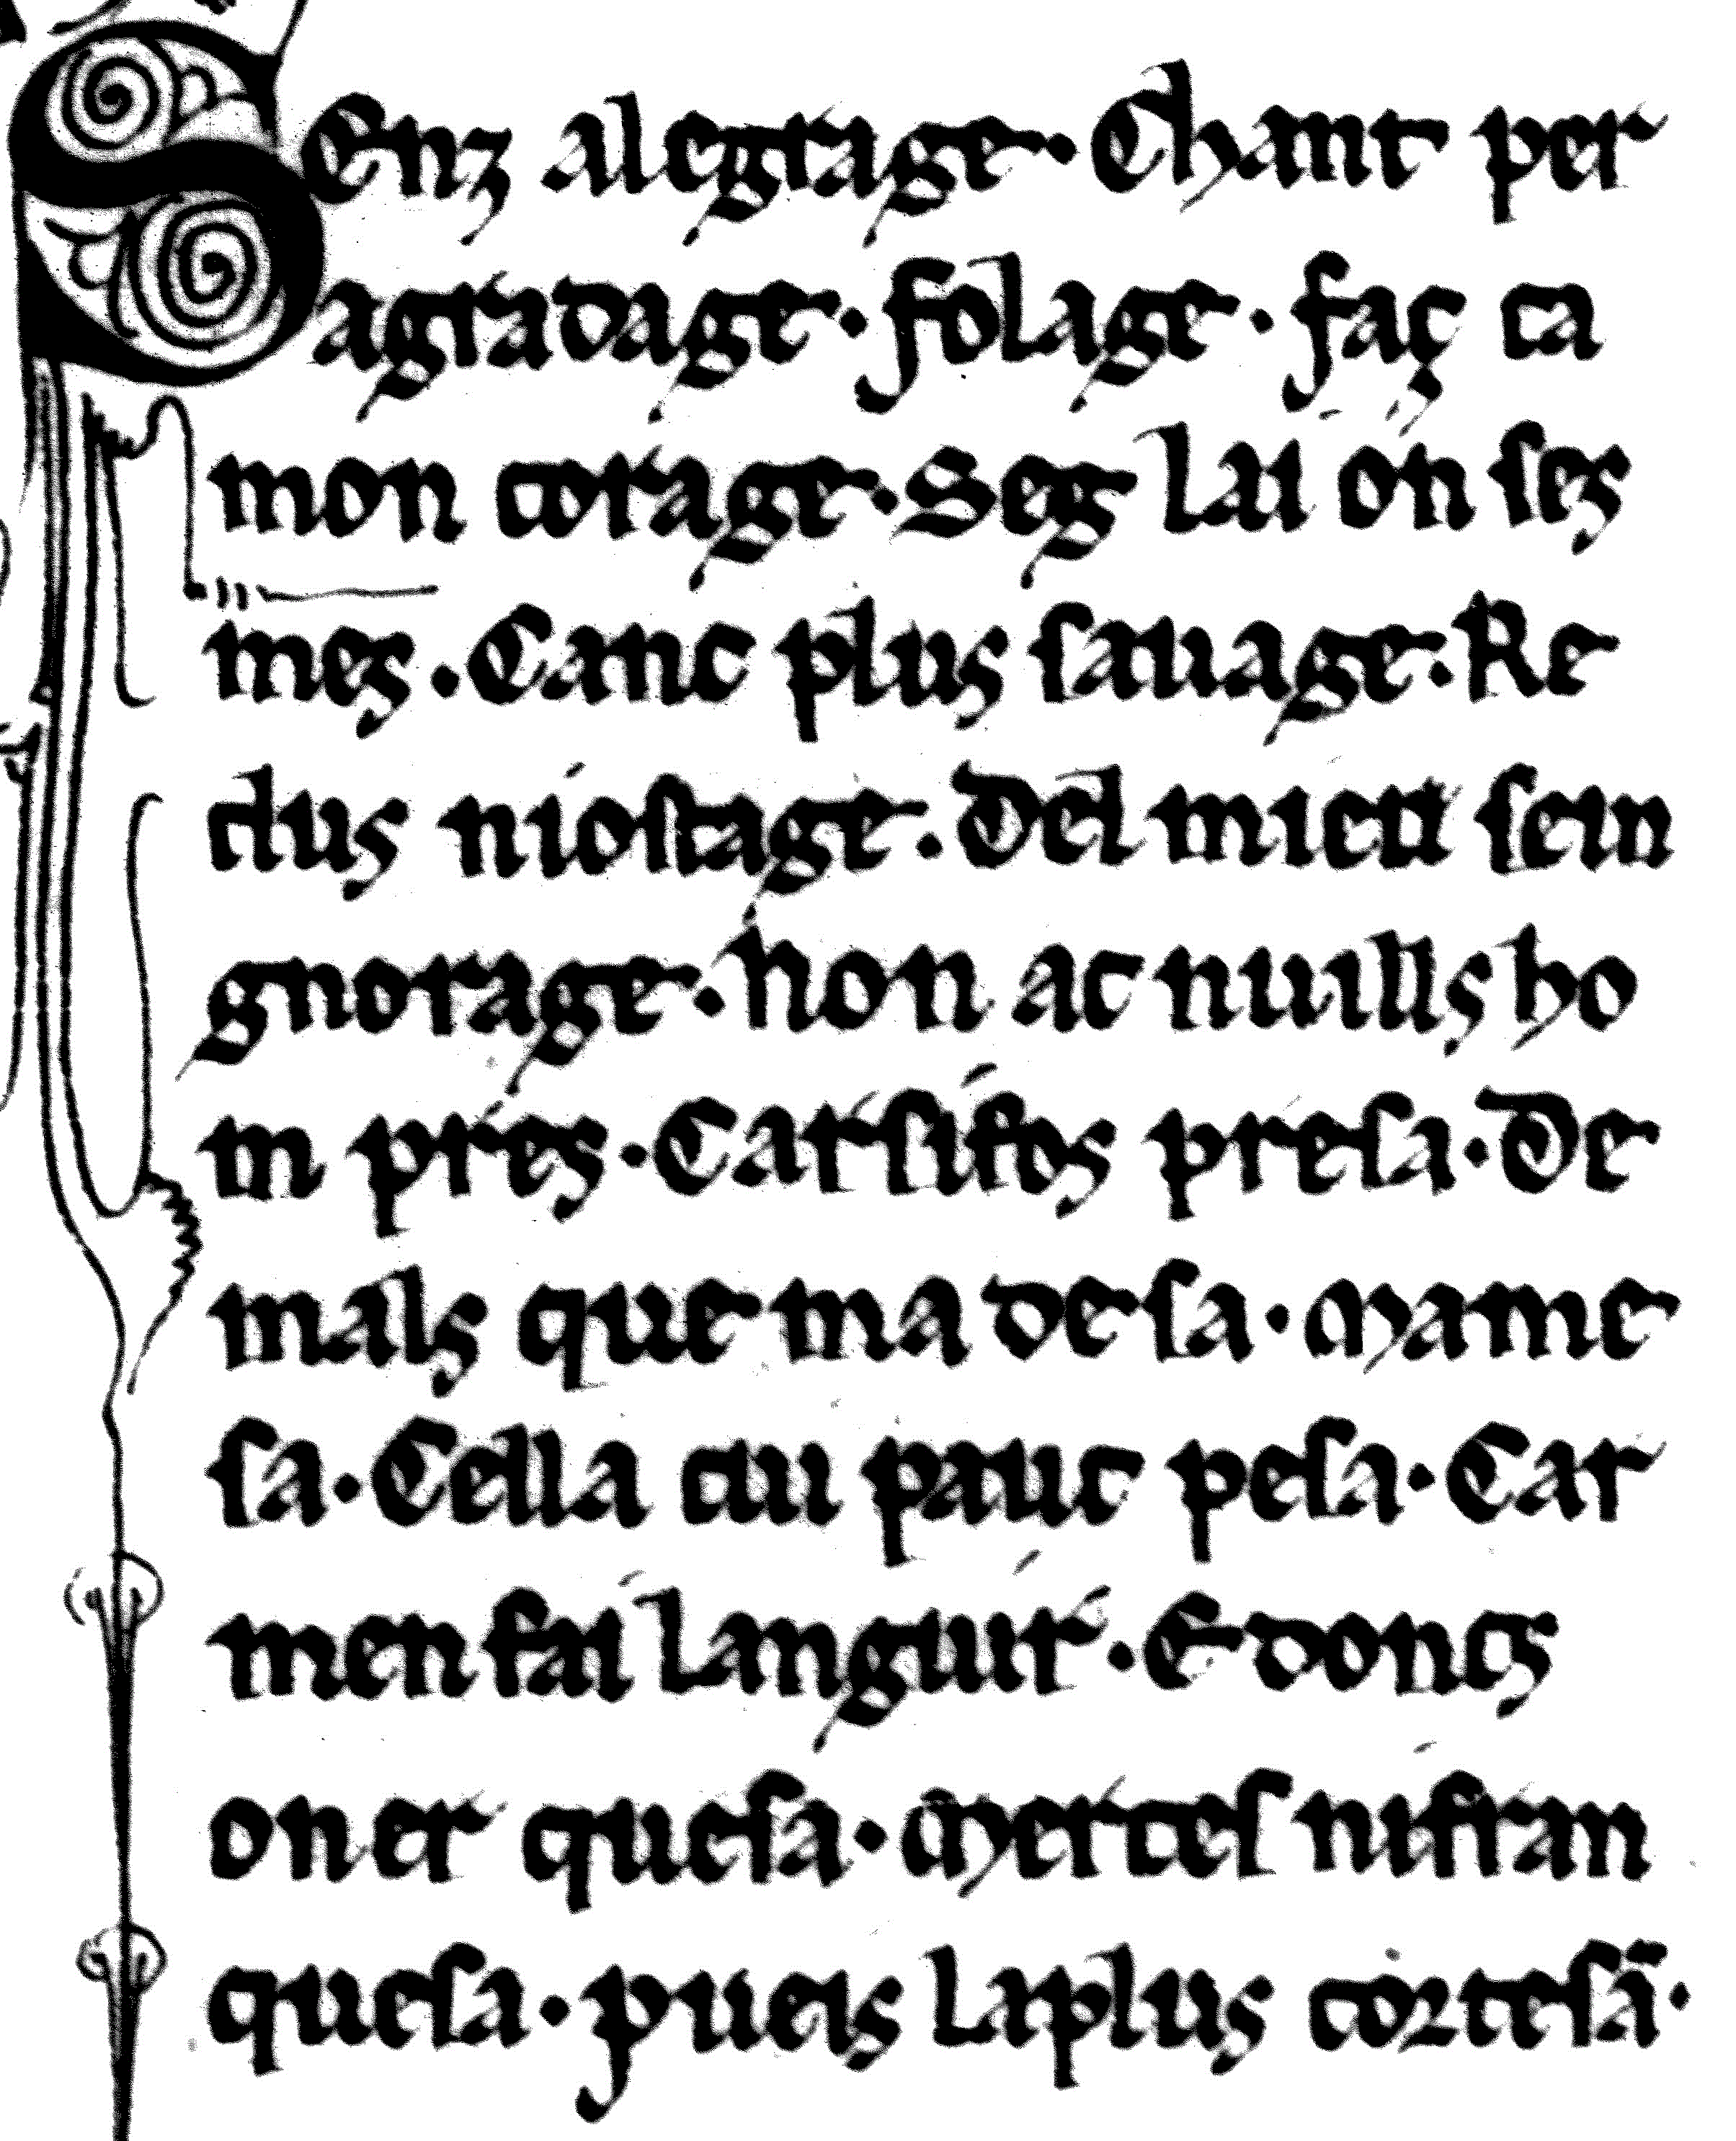 Senz alegrage · Chant per
agradage · folage · faç ca
mon corage · Seg lai on ses
mes · Canc plus sauage · Re
clus ni ostage · Del mieu sein
gnorage · Non ac nuills ho
m pres · Car si fos presa · De
mals que ma de sa · Mame
sa · Cella cui pauc pesa · Car
men fai languir · E doncs
on er quesa · Mertes ni fran
quesa · pueis la plus cortesã ·